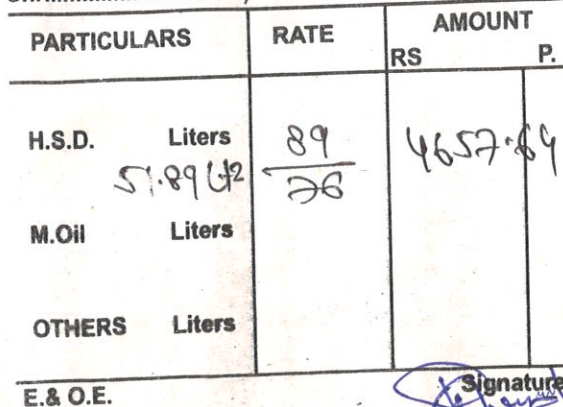 PARTICULARS RATE AMOUNT
RS P.
H.S.D. Liters 89 4657.64
51.89 Ltr 76
M.Oil Liters
OTHERS Liters
E.& O.E. Signature